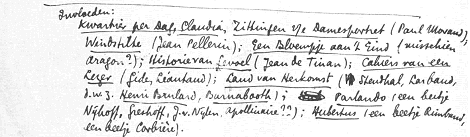 Invloeden:
Kwartier per Dag, Claudia, Zittingen v/e Damesportret (Paul Morand),
Windstilte (Jean Pellerin); Een Bloempje aan 't Eind (misschien
Aragon?); Historie van (Jean de Tinan); Cahiers van een
Lezer (Gide, Léautaud); Land van Herkomst (Stendhal, Larbaud,
d.w.z. Henri Brulard, Barnabooth); Parlando (een beetje
Nijhoff, Greshoff, J.v. Nylen, Apollinaire??); Hubertus (een beetje Rimbaud,
een beetje Corbière).